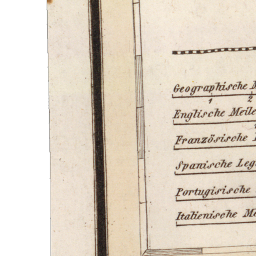 Geographische
1 2
Englische Meile
Französische
Spanische Leg
Portugisische
Italienische Me